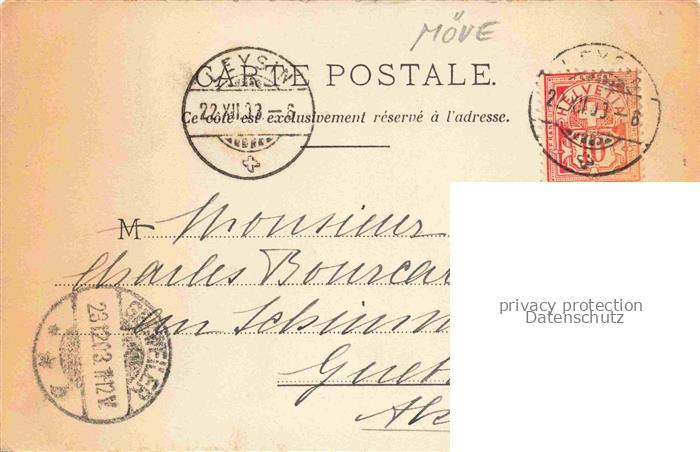 MÖVE
CARTE POSTALE.
Ce côté est exclusivement réservé à l'adresse.
LEYSIN
22.XII.03–6
LEYSIN
22.XII.03–6
HELVETIA
10
M Monsieur
Charles Bourcar
Gueb
Als
GEBWEILER
23.12.03.11-12V.
b
privacy protection
Datenschutz